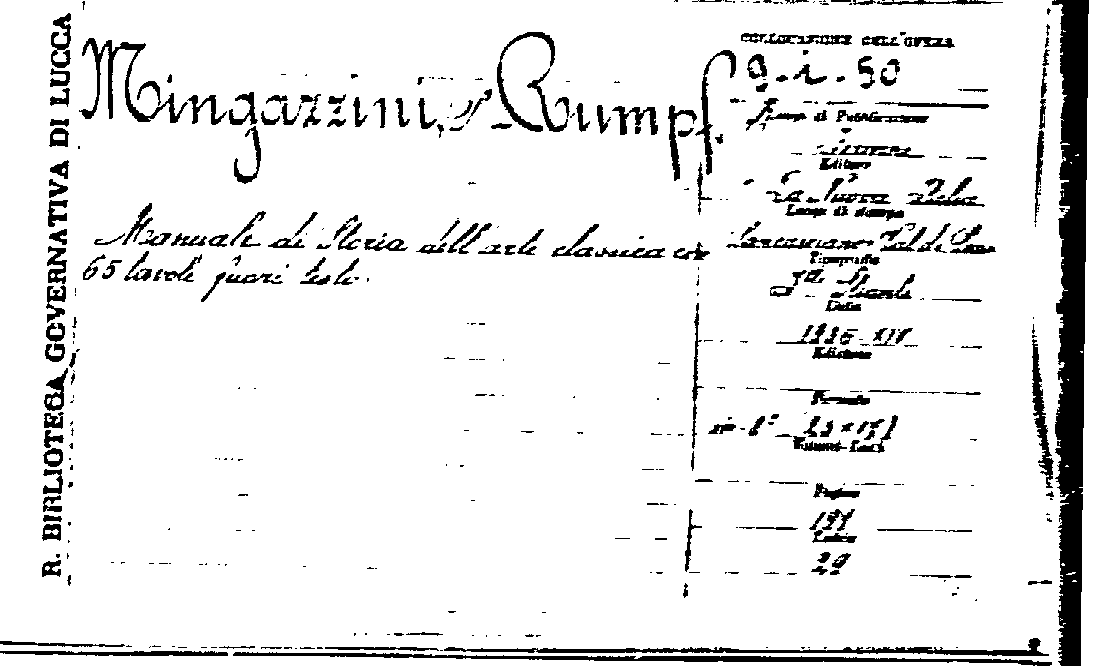 R. BIBLIOTECA GOVERNATIVA DI LUCCA
Mingazzini, e Rumpf.
Manuale di Storia dell'arte classica con
65 tavole fuori testo.
COLLOCAZIONE DELL'OPERA
9. i. 50
Luogo di Pubblicazione
Firenze
Editore
La Nuova Italia
Luogo di stampa
Lancasciano Val di
Tipografia
Data
1936-XIV
Edizione
Formato
in-8°
Pagine
Lire
29